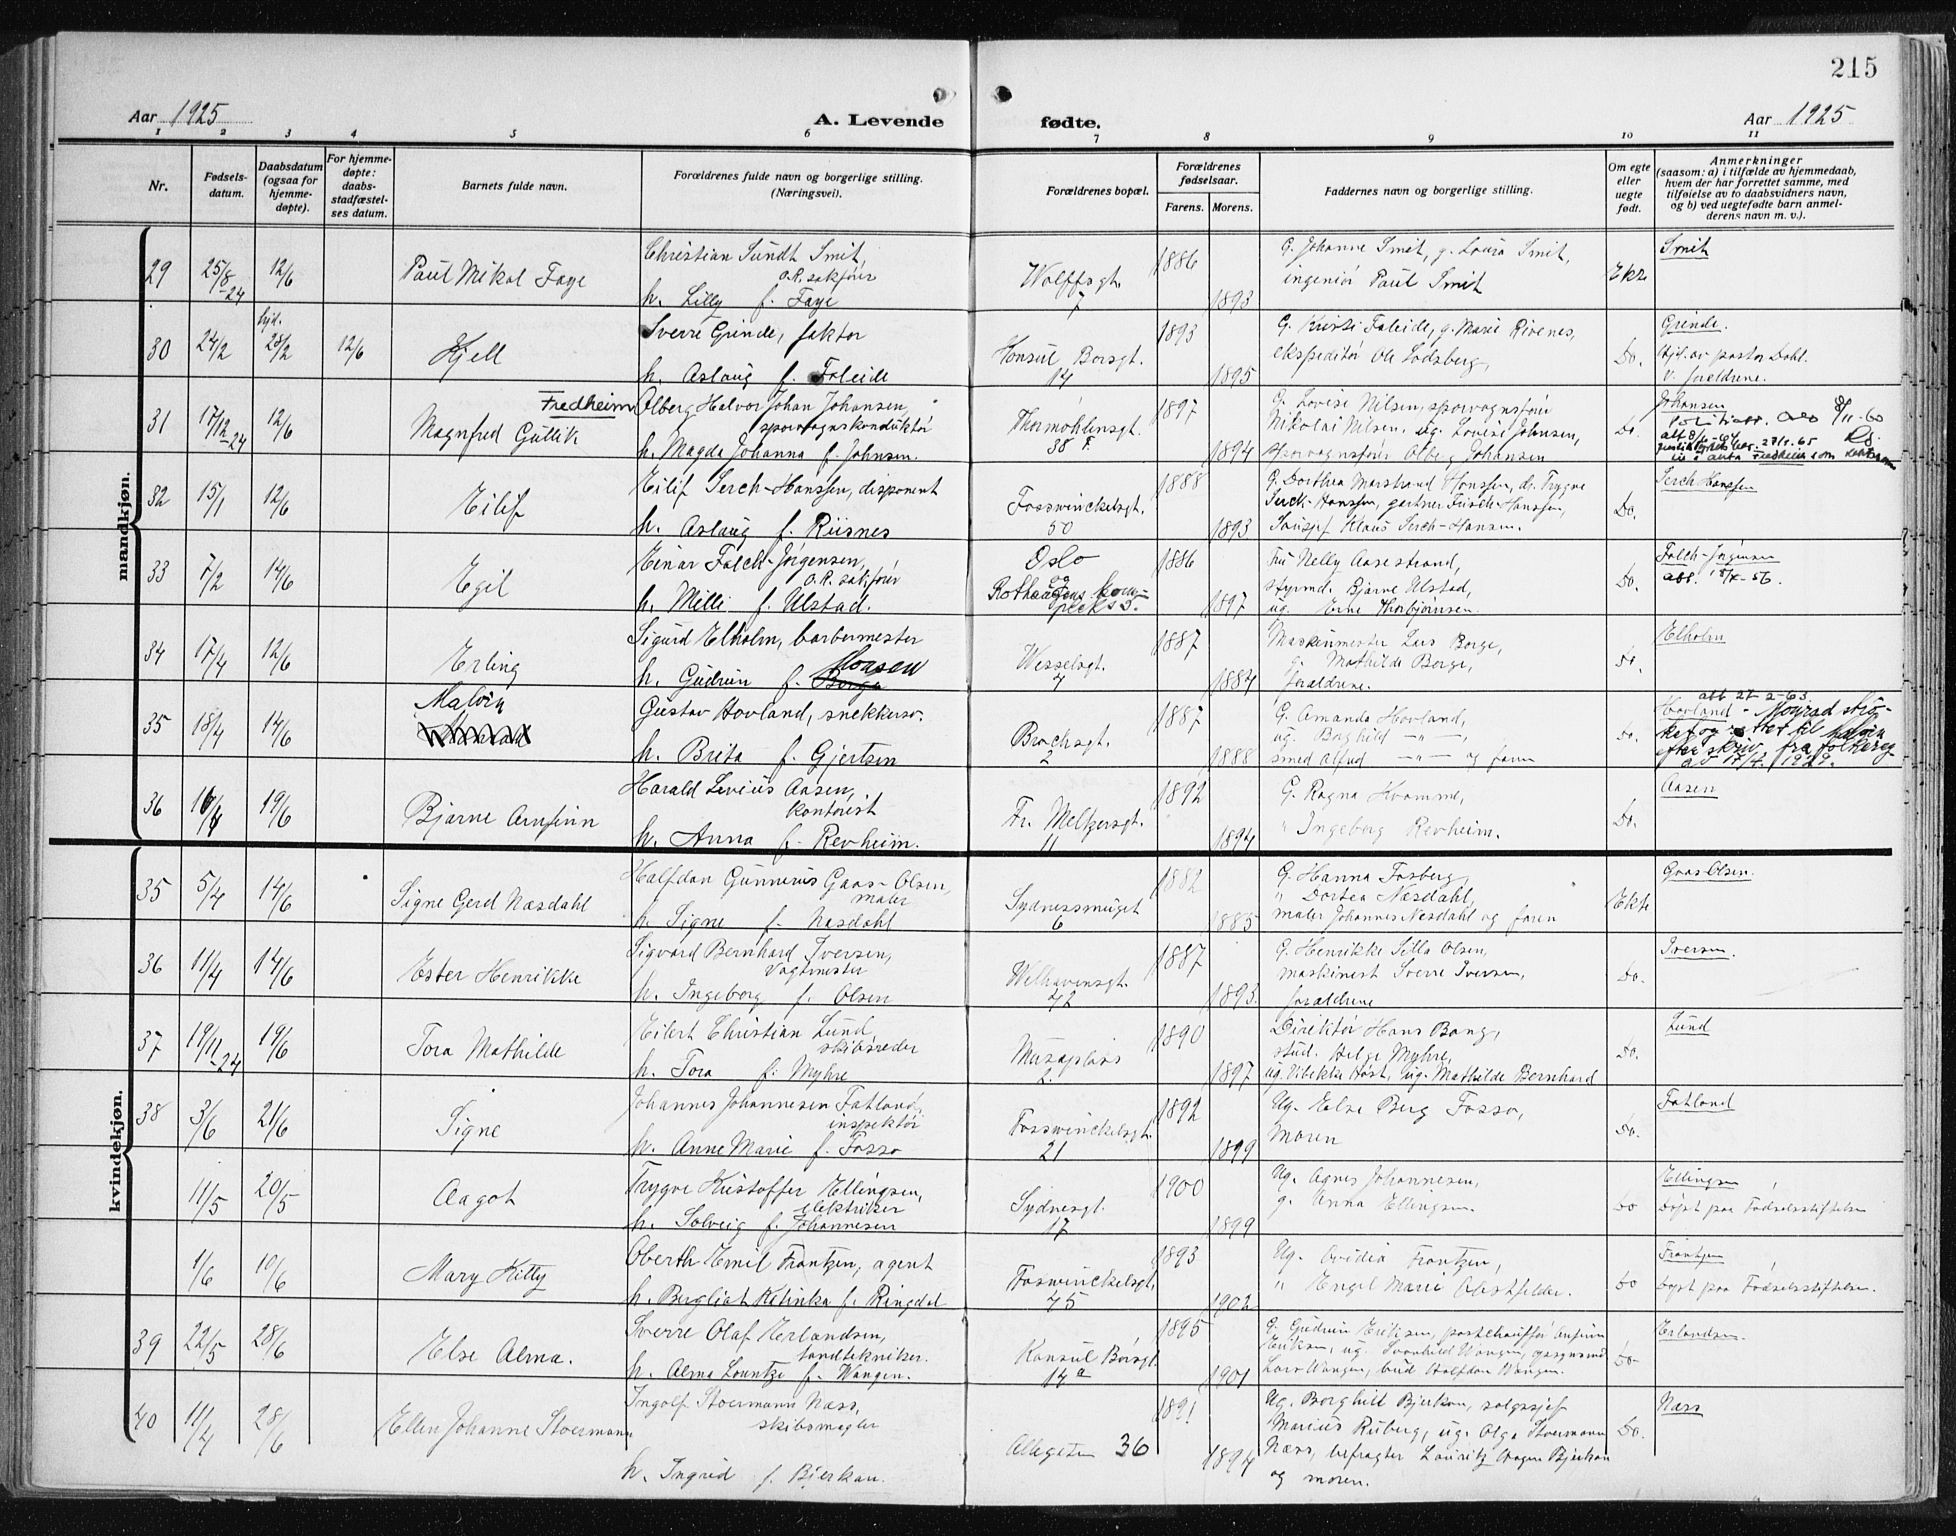 215
Aar 1925
A. Levende
fødte.
Aar 1925
1 2 3 4 5 6 7 8 9 10 11
Nr.
Fødsels-
datum.
Daabsdatum
(ogsaa for
hjemme-
døpte).
For hjemme-
døpte:
daabs-
stadfæstel-
ses datum.
Barnets fulde navn.
Forældrenes fulde navn og borgerlige stilling.
(Næringsvei).
Forældrenes bopæl.
Forældrenes
fødselsaar.
Farens. Morens.
Faddernes navn og borgerlige stilling.
Om egte
eller
uegte
født.
Anmerkninger
(saasom: a) i tilfælde av hjemmedaab,
hvem der har forrettet samme, med
tilføielse av to daabsvidners navn,
og b) ved uegtefødte barn anmel-
derens navn m. v.).
mandkjøn.
29 25/8-24 12/6 Paul Mikal Faye
Christian Sundt Smit,
o.R. sakfører
h. Lilly f. Faye
Wolffsgt.
7
1886
1893
G. Johanne Smit, g. Loura Smit,
ingeniør Paul Smit
Ekte
Smit
30 24/2 hjd. 25/2 12/6 Kjell
Sverre Grinde, faktor
h. Aslaug f. Faleide
Konsul Børsgt.
14
1893
1895
G. Kristi Faleide, g. Marie Rivenes,
ekspeditør Ole Lodsberg,
Do.
Grinde.
Hjd. av pastor Dahl.
v. forældrene.
31 17/12-24 12/6 Magnfred Gullik Fredheim
Olberg Halvor Johan Johansen,
sporvognskonduktør
h. Magda Johanna f. Johnsen.
Thormøhlensgt.
38 F.
1897
1894
G. Lovise Nilsen, sporvognsfører
Nikolai Nilsen, ug. Lovise Johnsen,
sporvognsfører Olberg Johansen
Do.
Johansen
8/11-60
Fredheim som
32 15/1 12/6 Eilif
Eilif Serch-Hanssen, disponent
h. Aslaug f. Riisnes
Fosswinckelsgt.
50
1888
1893
G. Dorthea Marstrand Hanssen, dr. Trygve
Serch-Hanssen, gartner Fredrik Hanssen,
Klaus Serch-Hansen.
Do.
Serch Hanssen
33 7/2 14/6 Egil
Einar Falch-Jørgensen,
o.R. sakfører
h. Milli f. Ulstad.
Oslo
Rothaugens kom-
pleks 3.
1886
1897
Fru Nelly Aasestrand,
styrmd. Bjarne Ulstad,
ug. Erne Thorbjørnsen.
Do.
Falch-Jørgensen
att. 18/X-56.
34 17/4 12/6 Erling
Sigurd Elholm, barbermester
h. Gudrun f. Borge Monsen
Wesselsgt.
7
1887
1884
Maskinmester Lars Borge,
G. Mathilde Borge,
forældrene.
Do.
Elholm
35 18/4 14/6 Malvin
Gustav Hovland, snekkersv.
h. Brita f. Gjertsen
Brochsgt.
2
1887
1888
G. Amanda Hovland,
ug. Borghild —"—
smed Alfred —"— og faren
Do.
att 27-2-63.
Hovland - Monrad strø-
ket og rettet til Malvin
efter skriv. fra folkereg.
av 17/4. 1929.
36 16/4 19/6 Bjarne Arnfinn
Harald Levius Aasen,
kontorist
h. Anna f. Revheim.
Fr. Meltzersgt.
11
1892
1894
G. Ragna Kvamme,
" Ingeborg Revheim.
Do.
Aasen
kvindekjøn.
35 5/4 14/6 Signe Gerd Næsdahl
Halfdan Gunnerus Gaas-Olsen,
maler
h. Signe f. Næsdahl
Sydnessmuget
6
1882
1885
G. Hanna Fosberg,
" Dortea Næsdahl,
maler Johannes Næsdahl og faren
Ekte
Gaas Olsen.
36 11/4 14/6 Ester Henrikke
Sigvard Bernhard Iversen,
vagtmester
h. Ingeborg f. Olsen
Welhavensgt.
72
1887
1893.
G. Henrikke Silla Olsen,
maskinist Sverre Iversen,
forældrene
Do.
Iversen.
37 19/11-24 19/6 Tora Mathilde
Eilert Christian Lund
skibsreder
h. Tora f. Myhre
Musæplass
2.
1890
1897
Direktør Hans Bang,
stud. Helge Myhre,
ug. Vibekke Høst, ug. Mathilde Bernhard
Do.
Lund
38 3/6 21/6 Signe
Johannes Johannesen Fatland,
inspektør
h. Anne Marie f. Fosso
Fosswinckelsgt.
21
1892
1899
Ug. Else Berg Fosso,
moren
Do.
Fatland
11/5 20/5 Aagot
Trygve Kristoffer Ellingsen,
elektriker
h. Solveig f. Johannesen
Sydnesgt.
17
1900
1899
Ug. Agnes Johannesen,
g. Anna Ellingsen.
Do
Ellingsen
Døpt paa Fødselsstiftelsen
1/6 10/6 Mary Kitty
Oberth Emil Frantzen, agent
h. Bergliot Katinka f. Ringdal
Fosswinckelsgt,
45
1893
1902
Ug. Ovidia Frantzen,
" Engel Marie Obstfelder.
Do
Frantzen
Døpt paa Fødselsstiftelsen.
39 22/5 28/6 Else Alma.
Sverre Olaf Erlandsen,
tandtekniker.
h. Alma Lountze f. Wangen.
Konsul Børsgt.
14 a
1895
1901
G. Gudrun Eriksen, postchauffør Arnfinn
Eriksen, ug. Svanhild Wangen, opsynsmd
Lars Wangen, bud Halfdan Wangen.
Do-
Erlandsen.
40 11/4 28/6 Ellen Johanne Stoermann
Ingolf Stoermann Næss,
skibsmegler
h. Ingrid f. Bjerkan.
Allegaten 36
1891
1894
Ug. Borghild Bjerkan, salgssjef
Marius Ruberg, ug. Olga Stoermann
Næss, befragter Lauritz Wagen Bjerkan
og moren.
Do.
Næss